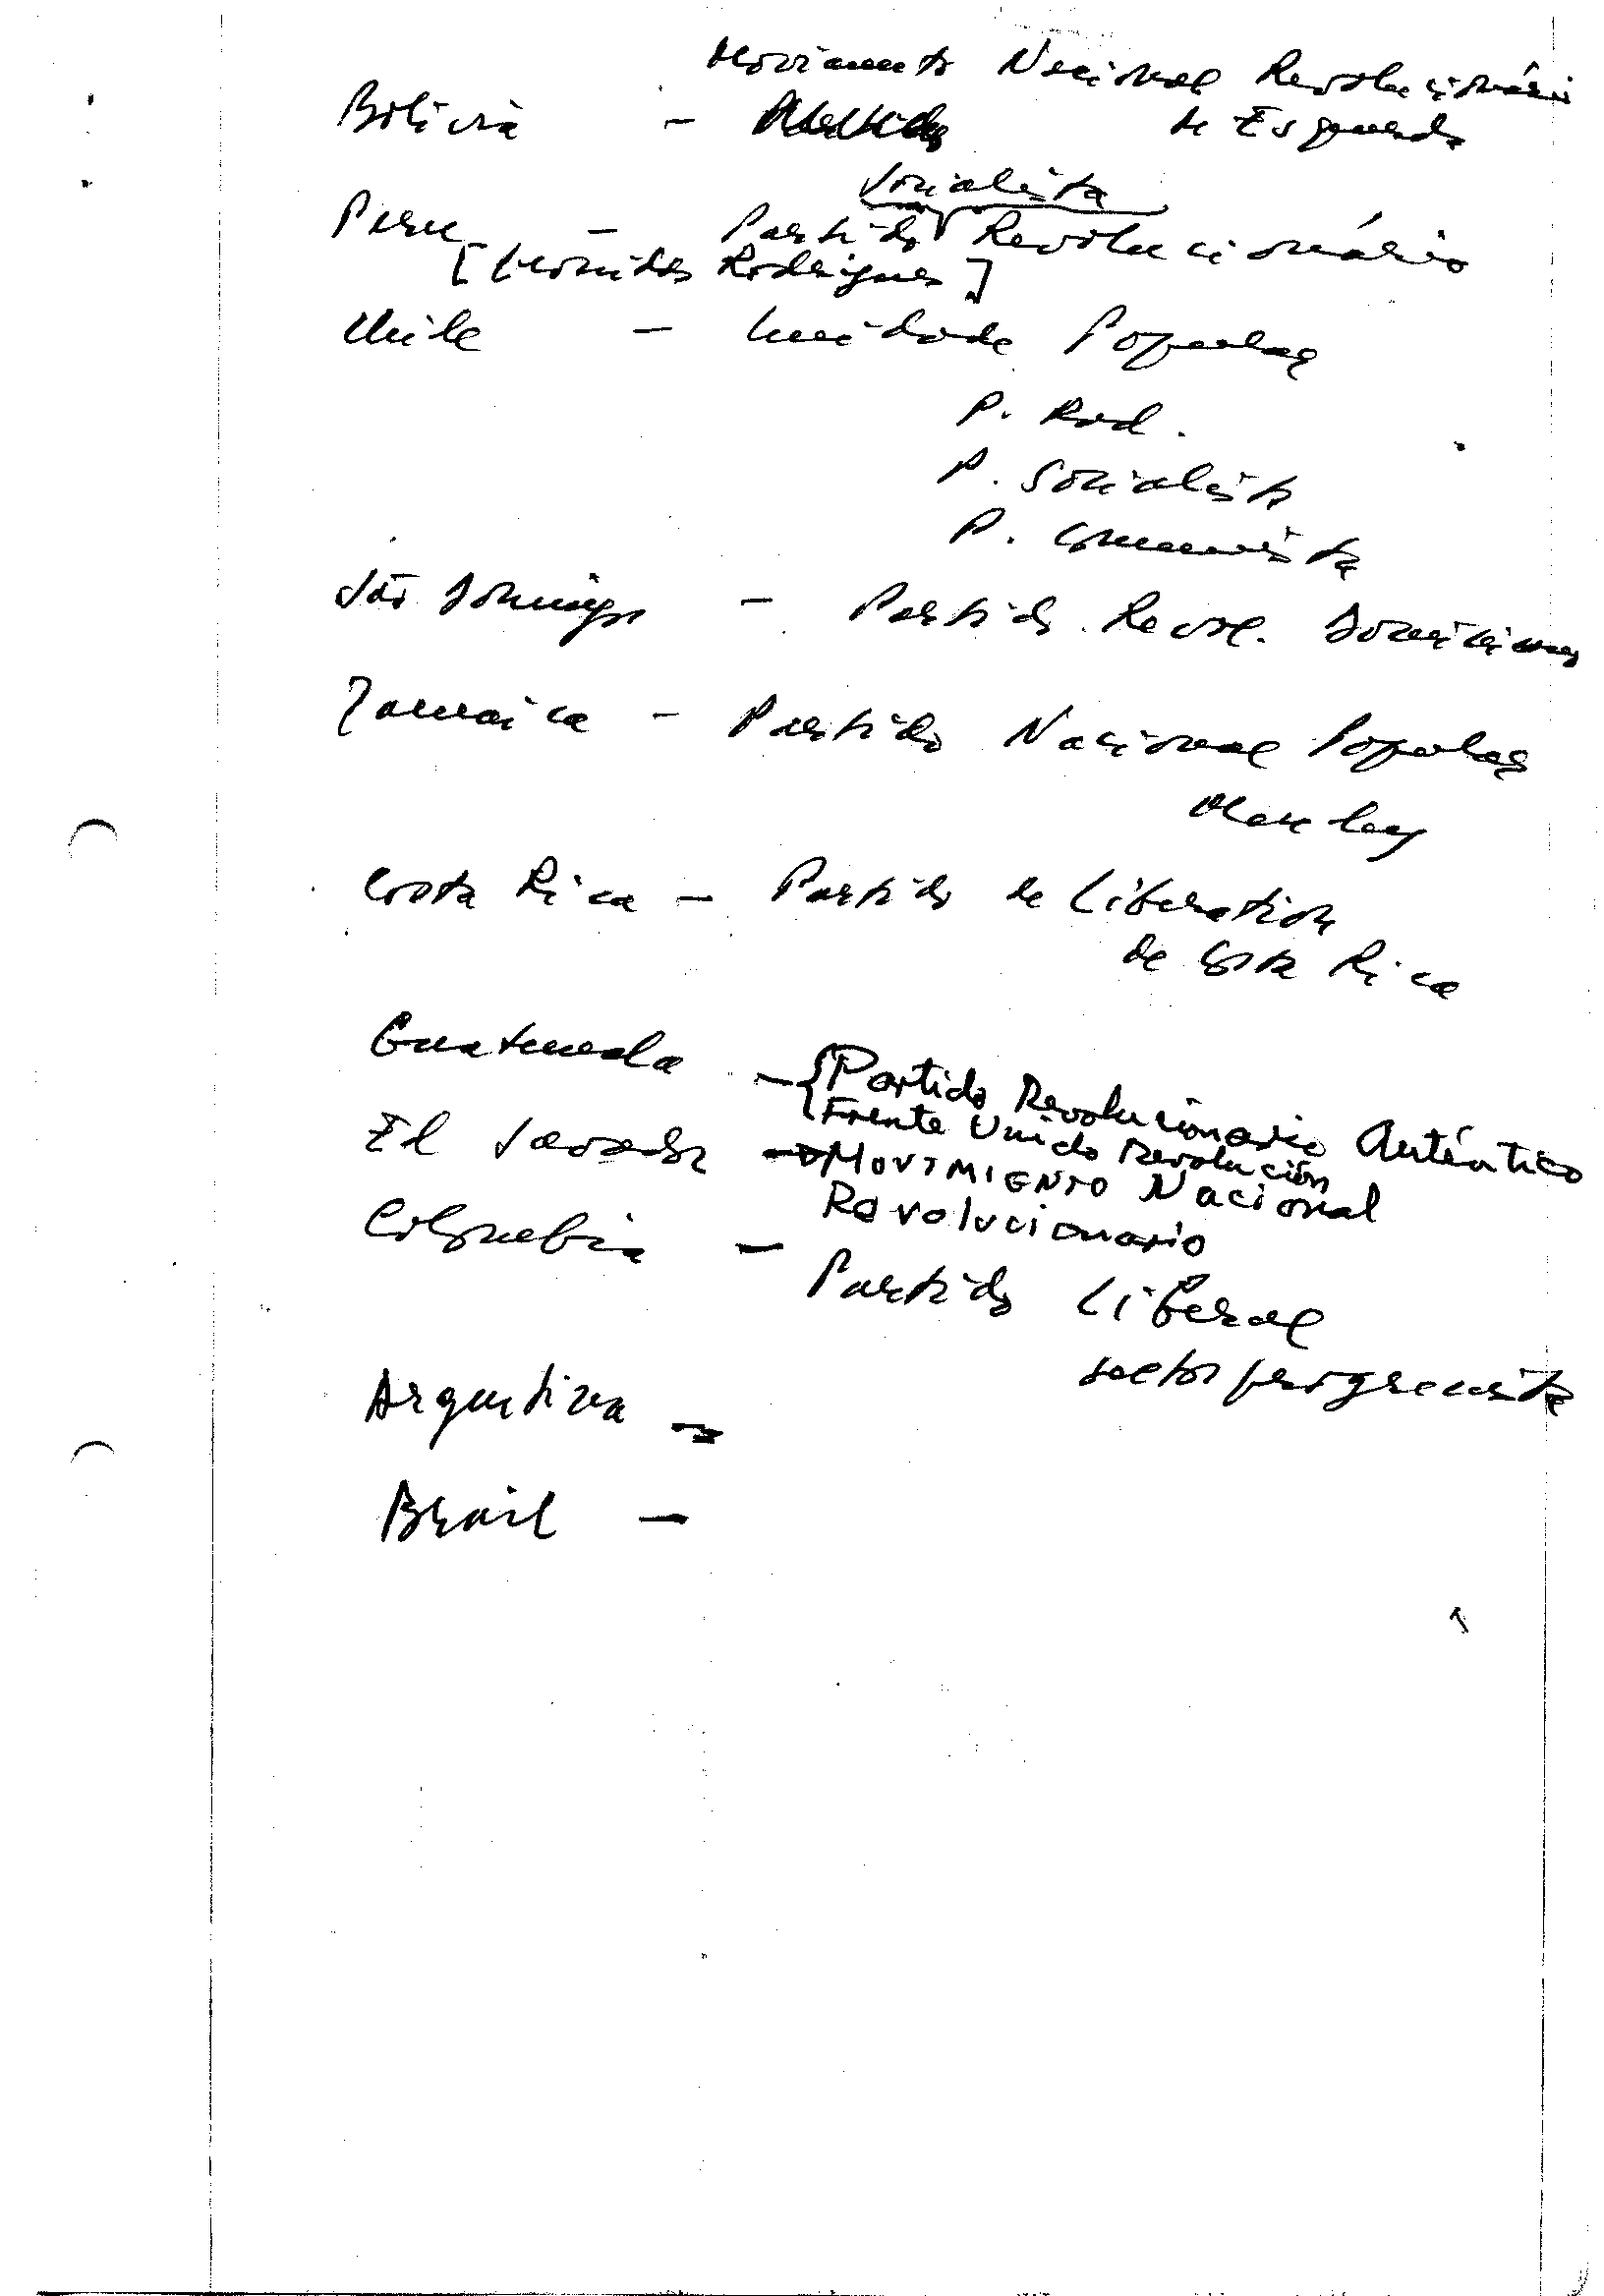 Movimento Nacional Revolucionário
Bolívia - de Esquerda
Socialista
Peru - Partido Revolucionário
[Leonidas Rodrigues]
Chile - Unidade Popular
P. Rad.
P. Socialista
P. Comunista
São Domingo - Partido Revol. Dominicano
Jamaica - Partido Nacional Popular
Manley
Costa Rica - Partido de Liberation
de Costa Rica
Guatemala - { Partido Revolucionario Auténtico
Frente Unido Revolución
El Savador - MOVIMIENTO Nacional
Revolucionario
Colombia - Partido Liberal
sector progressista
Argentina -
Brasil -